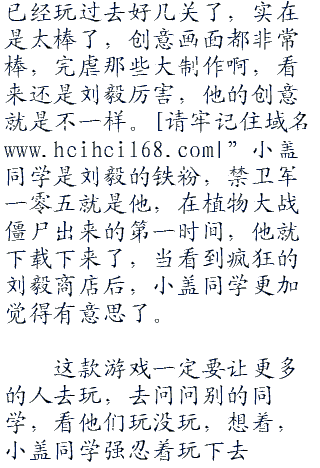 已经玩过去好几关了，实在
是太棒了，创意画面都非常
棒，完虐那些大制作啊，看
来还是刘毅厉害，他的创意
就是不一样。[请牢记住域名
www.hcihcil68.com|”小盖
同学是刘毅的铁粉，禁卫军
一零五就是他，在植物大战
僵尸出来的第一时间，他就
下载下来了，当看到疯狂的
刘毅商店后，小盖同学更加
觉得有意思了。
这款游戏一定要让更多
的人去玩，去问问别的同
学，看他们玩没玩，想着，
小盖同学强忍着玩下去